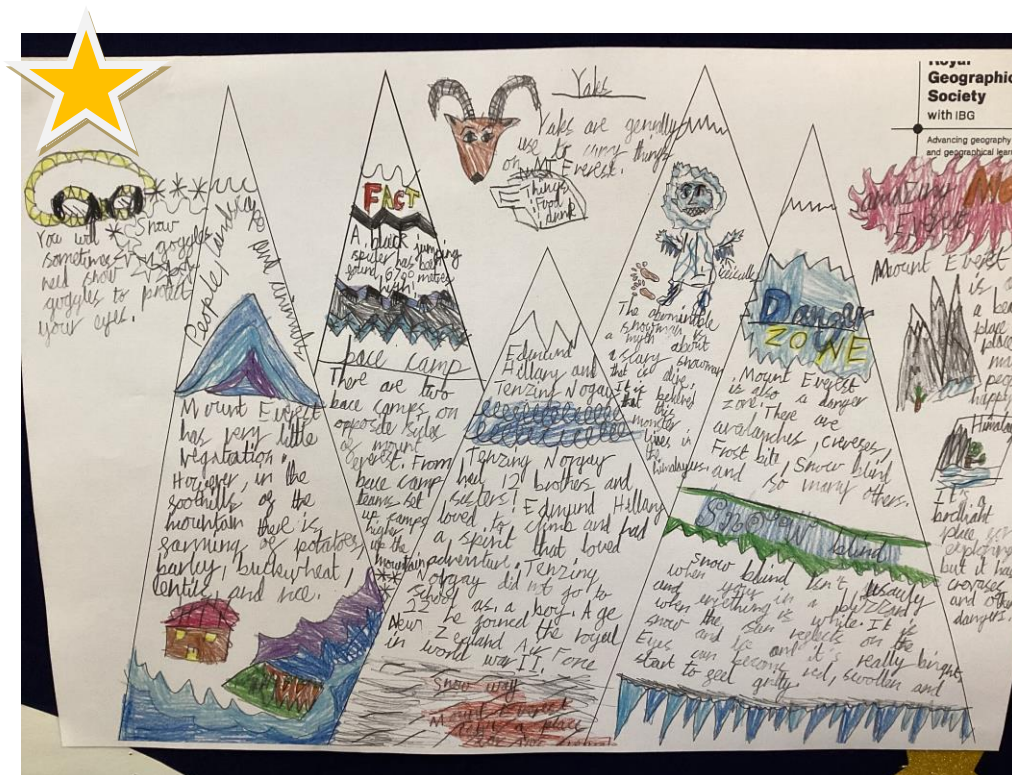 Royal
Geographic
Society
with IBG
Advancing geography
and geographical lear
Snow
goggles
You will
sometimes
need snow
goggles to protect
your eyes.
People, landscape and animals
Mount Everest
has very little
vegitation.
However in the
foothills of the
mountain there is
farming of potatoes,
barley, buckwheat,
lentils, and rice.
FACT
A black jumping
spider has been
found 6700 metres
high!
bace camp
There are two
bace camps on
opposide sides
of mount
everest. From
bace camp
teams set
up camps
higher
up the
mountain
Yaks
Yaks are generally
use to carry things
on MT Everest.
Things
Food
drink
Edmund
Hillary and
Tenzing Norgay
Tenzing Norgay
had 12 brothers and
sisters! Edmund Hillary
loved to climb and had
a spirit that loved
adventure. Tenzing
Norgay did not go to
school as a boy. Age
22 he joined the royal
New Zealand Air Force
in world war II.
Snow way
Mount Everest
a place
The abominable
snowman is
a myth about
a scary snowman
that is alive.
It is belived
that this
monster
lives in
the
himalayers.
Danger
ZONE
Mount Everest
is also a danger
zone. There are
avalanches, crevases,
Frost bite, Snow blind
and so many others.
Snow blind
Snow blind isn't usually
when your in a blizzard
and everything is white. It is
when the sun reflects on the
snow and ice and it's really bright.
Eyes can become red, swollen and
start to feel gritty.
amazing
Everest
Mount Everest
is a
place
place
happy
Himalay
It's a
brilliant
place for
exploring
but it has
crevases
and other
dangers.